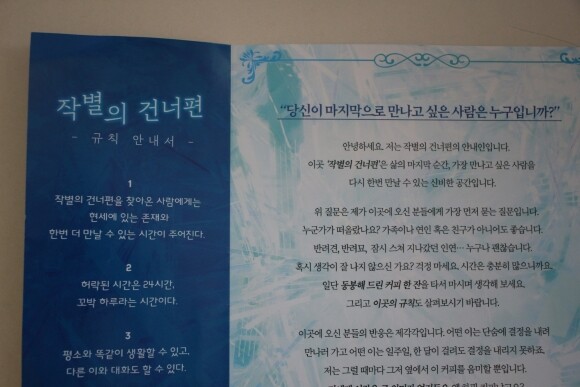 작별의 건너편
- 규칙 안내서 -
1
작별의 건너편을 찾아온 사람에게는
현세에 있는 존재와
한번 더 만날 수 있는 시간이 주어진다.
2
허락된 시간은 24시간,
꼬박 하루라는 시간이다.
3
평소와 똑같이 생활할 수 있고,
다른 이와 대화도 할 수 있다.
“당신이 마지막으로 만나고 싶은 사람은 누구입니까?”
안녕하세요. 저는 작별의 건너편의 안내인입니다.
이곳 '작별의 건너편'은 삶의 마지막 순간, 가장 만나고 싶은 사람을
다시 한번 만날 수 있는 신비한 공간입니다.
위 질문은 제가 이곳에 오신 분들에게 가장 먼저 묻는 질문입니다.
누군가가 떠올랐나요? 가족이나 연인 혹은 친구가 아니어도 좋습니다.
반려견, 반려묘, 잠시 스쳐 지나갔던 인연… 누구나 괜찮습니다.
혹시 생각이 잘 나지 않으신 가요? 걱정 마세요. 시간은 충분히 많으니까요.
일단 동봉해 드린 커피 한 잔을 타서 마시며 생각해 보세요.
그리고 이곳의 규칙도 살펴보시기 바랍니다.
이곳에 오신 분들의 반응은 제각각입니다. 어떤 이는 단숨에 결정을 내려
만나러 가고 어떤 이는 일주일, 한 달이 걸려도 결정을 내리지 못하죠.
저는 그럴 때마다 그저 옆에서 이 커피를 음미할 뿐입니다.